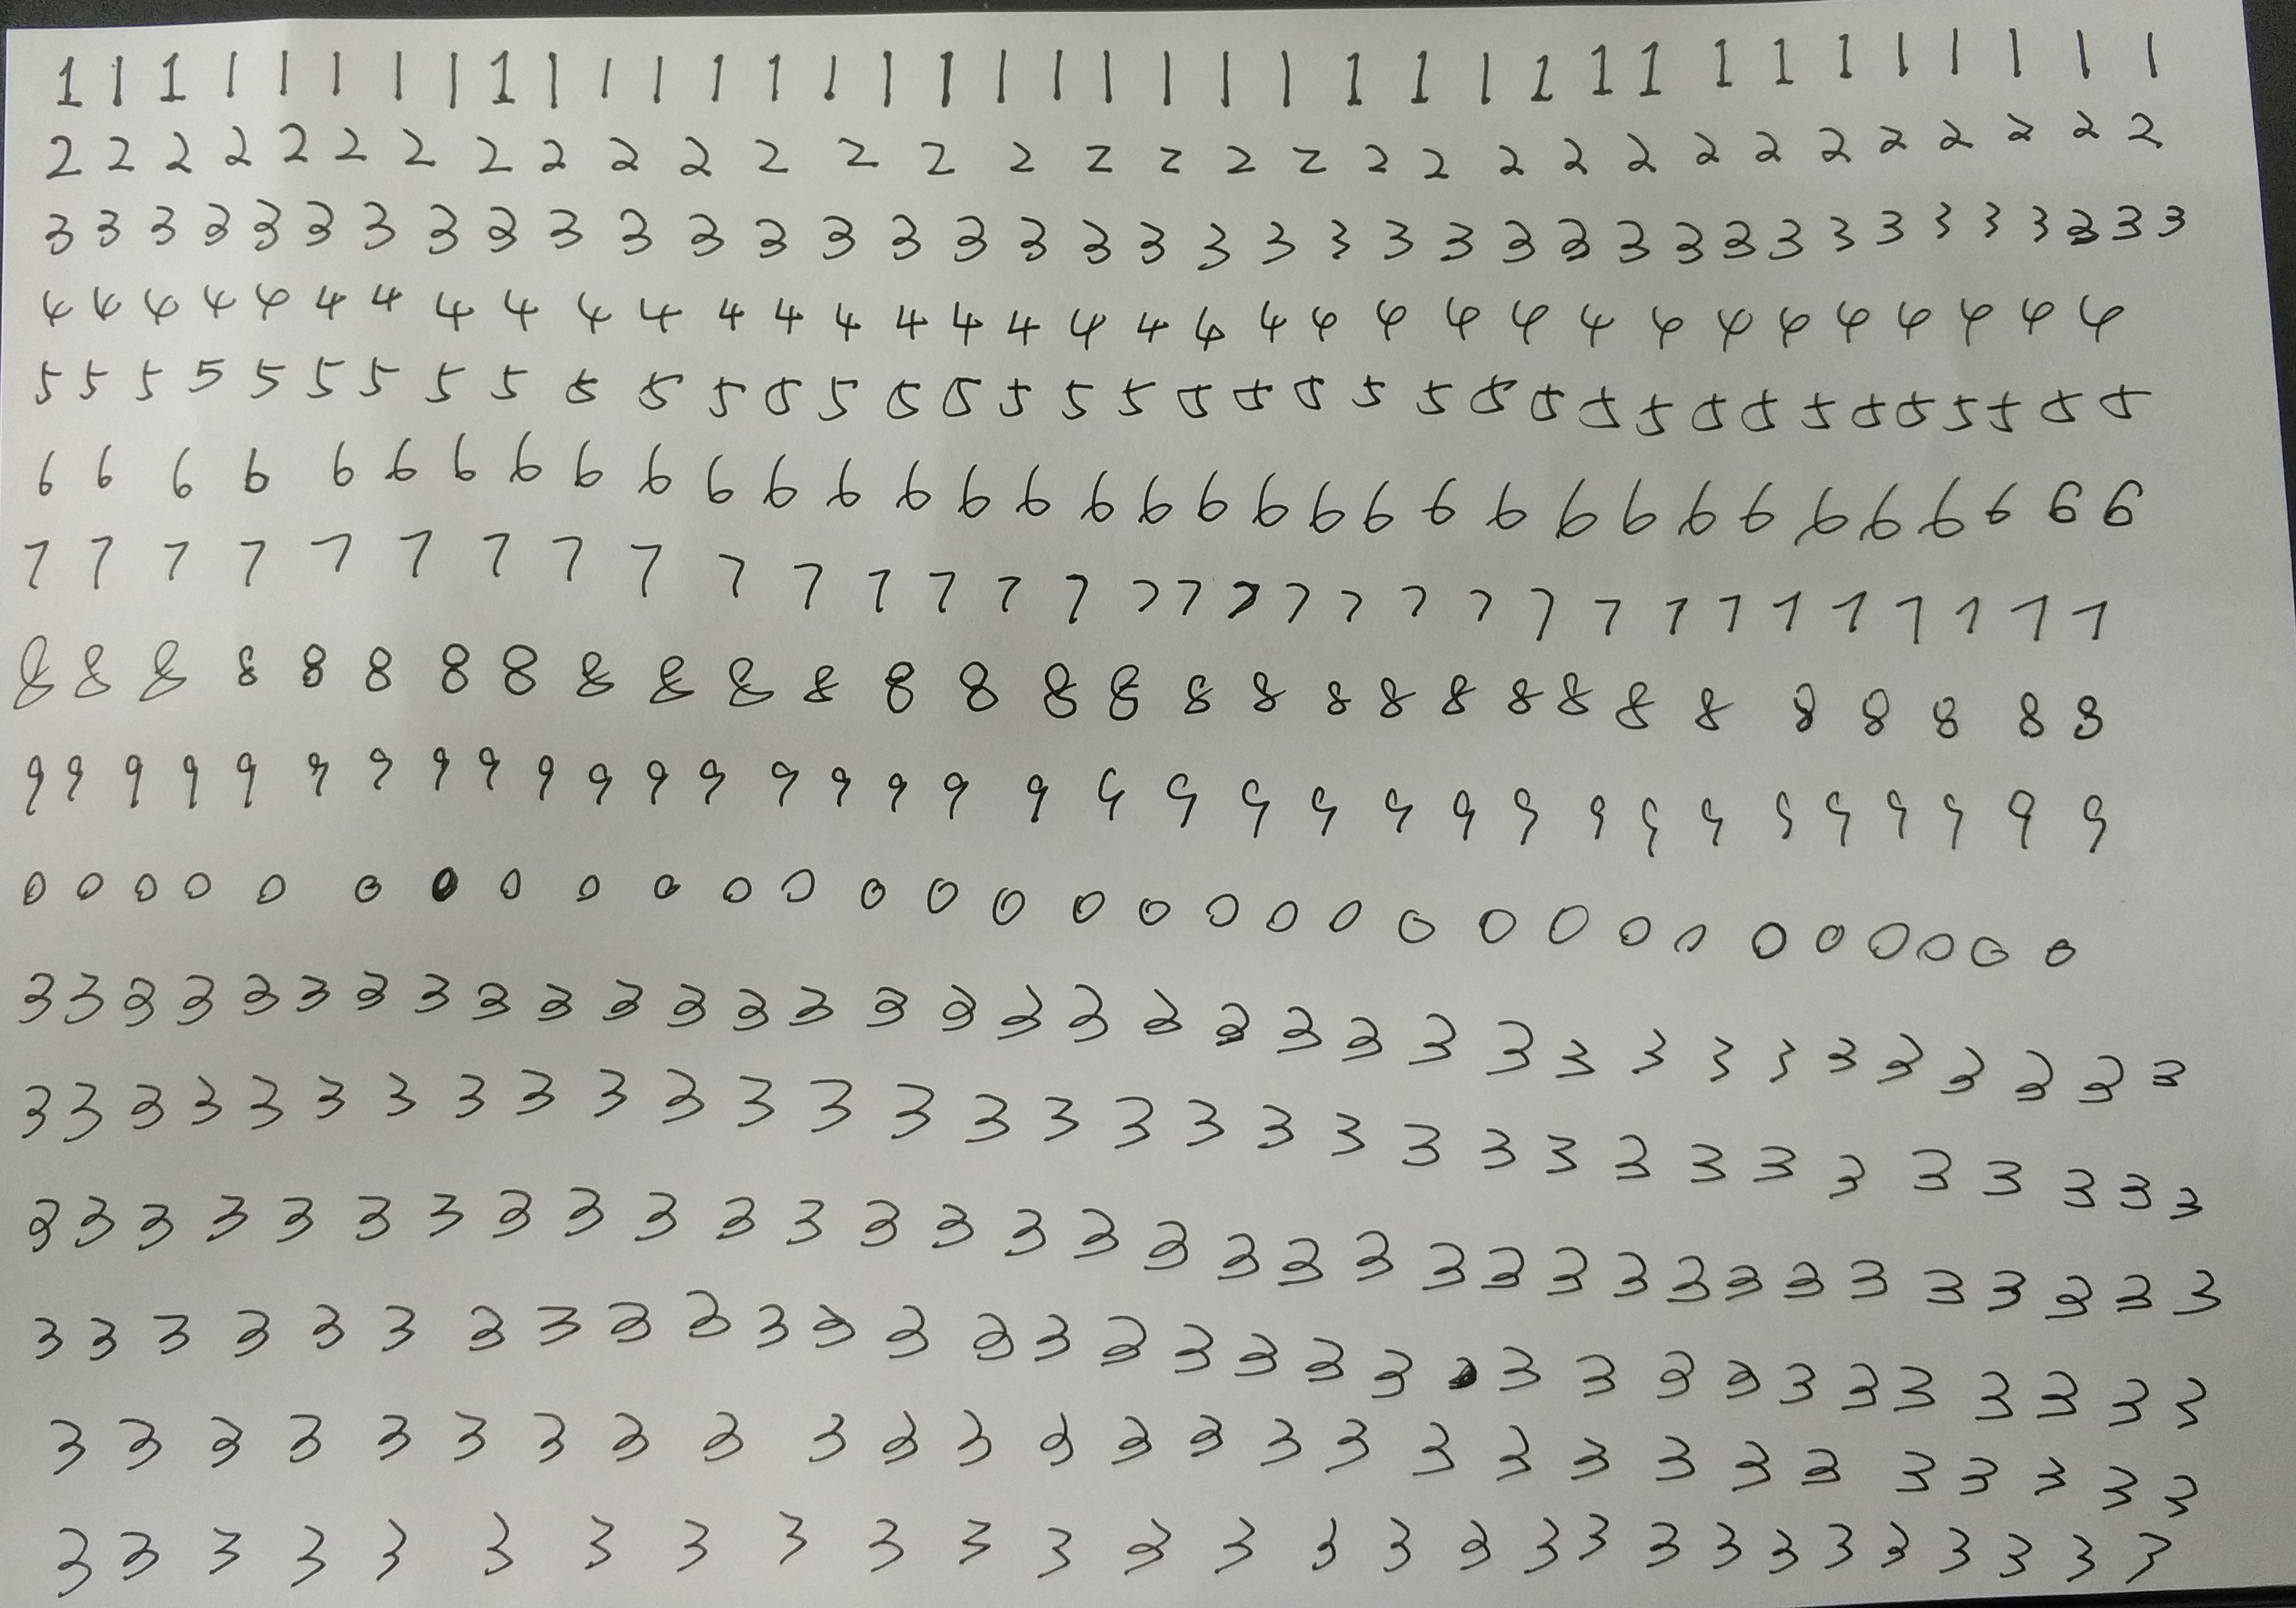 1 1 1 1 1 1 1 1 1 1 1 1 1 1 1 1 1 1 1 1 1 1 1 1 1 1 1 1 1 1 1 1 1 1 1 1 1
2 2 2 2 2 2 2 2 2 2 2 2 2 2 2 2 2 2 2 2 2 2 2 2 2 2 2 2 2 2 2 2
3 3 3 3 3 3 3 3 3 3 3 3 3 3 3 3 3 3 3 3 3 3 3 3 3 3 3 3 3 3 3 3 3 3 3 3 3 3
4 4 4 4 4 4 4 4 4 4 4 4 4 4 4 4 4 4 4 4 4 4 4 4 4 4 4 4 4 4 4 4 4 4
5 5 5 5 5 5 5 5 5 5 5 5 5 5 5 5 5 5 5 5 5 5 5 5 5 5 5 5 5 5 5 5 5 5 5 5 5
6 6 6 6 6 6 6 6 6 6 6 6 6 6 6 6 6 6 6 6 6 6 6 6 6 6 6 6 6 6 6 6 6 6
7 7 7 7 7 7 7 7 7 7 7 7 7 7 7 7 7 7 7 7 7 7 7 7 7 7 7 7 7 7 7 7
8 8 8 8 8 8 8 8 8 8 8 8 8 8 8 8 8 8 8 8 8 8 8 8 8 8 8 8 8 8
9 9 9 9 9 9 9 9 9 9 9 9 9 9 9 9 9 9 9 9 9 9 9 9 9 9 9 9 9 9 9 9 9 9
0 0 0 0 0 0 0 0 0 0 0 0 0 0 0 0 0 0 0 0 0 0 0 0 0 0 0 0 0 0 0
3 3 3 3 3 3 3 3 3 3 3 3 3 3 3 3 3 3 3 3 3 3 3 3 3 3 3 3 3 3 3 3 3 3
3 3 3 3 3 3 3 3 3 3 3 3 3 3 3 3 3 3 3 3 3 3 3 3 3 3 3 3 3 3 3 3
3 3 3 3 3 3 3 3 3 3 3 3 3 3 3 3 3 3 3 3 3 3 3 3 3 3 3 3 3 3 3 3 3
3 3 3 3 3 3 3 3 3 3 3 3 3 3 3 3 3 3 3 3 3 3 3 3 3 3 3 3 3 3 3
3 3 3 3 3 3 3 3 3 3 3 3 3 3 3 3 3 3 3 3 3 3 3 3 3 3 3 3
3 3 3 3 3 3 3 3 3 3 3 3 3 3 3 3 3 3 3 3 3 3 3 3 3 3 3 3